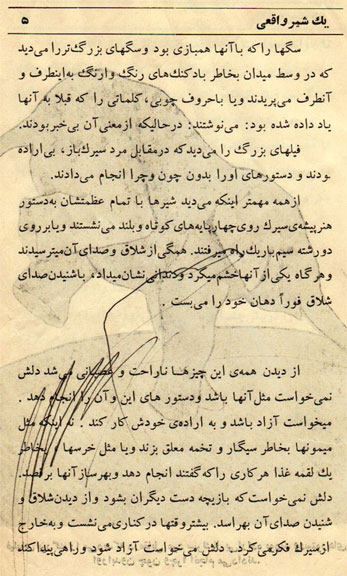 یك شیر واقعی
۵
سگها را که با آنها همبازی بود و سگهای بزرگ تر را می دید
که در وسط میدان بخاطر بادکنك های رنگ وارنگ به اینطرف و
آنطرف می پریدند و یا با حروف چوبی، کلماتی را که قبلا به آنها
یاد داده شده بود: می نوشتند: در حالیکه از معنی آن بی خبر بودند.
فیلهای بزرگ را می دید که در مقابل مرد سیرك باز، بی اراده
بودند و دستورهای او را بدون چون و چرا انجام می دادند.
از همه مهمتر اینکه می دید شیرها با تمام عظمتشان به دستور
هنرپیشه ی سیرك روی چهارپایه های کوتاه و بلند می نشستند و یا بر روی
دو رشته سیم باریك راه میرفتند. همگی از شلاق و صدای آن میترسیدند
و هرگاه یکی از آنها خشم میگرد و دندانی نشان میداد، با شنیدن صدای
شلاق فوراً دهان خود را می بست.
از دیدن همه ی این چیزها ناراحت و عصبانی می شد دلش
نمی خواست مثل آنها باشد و دستور های این و آن را انجام دهد.
میخواست آزاد باشد و به اراده ی خودش کار کند؛ نه اینکه مثل
میمونها بخاطر سیگار و تخمه معلق بزند و یا مثل خرسها بخاطر
یك لقمه غذا هر کاری را که گفتند انجام دهد و بهر ساز آنها برقصد.
دلش نمی خواست که بازیچه دست دیگران بشود و از دیدن شلاق و
شنیدن صدای آن بهراسد. بیشتر وقتها در کناری می نشست و به خارج
از سیرك فکر می کرد. دلش می خواست آزاد شود و راهی پیدا کند